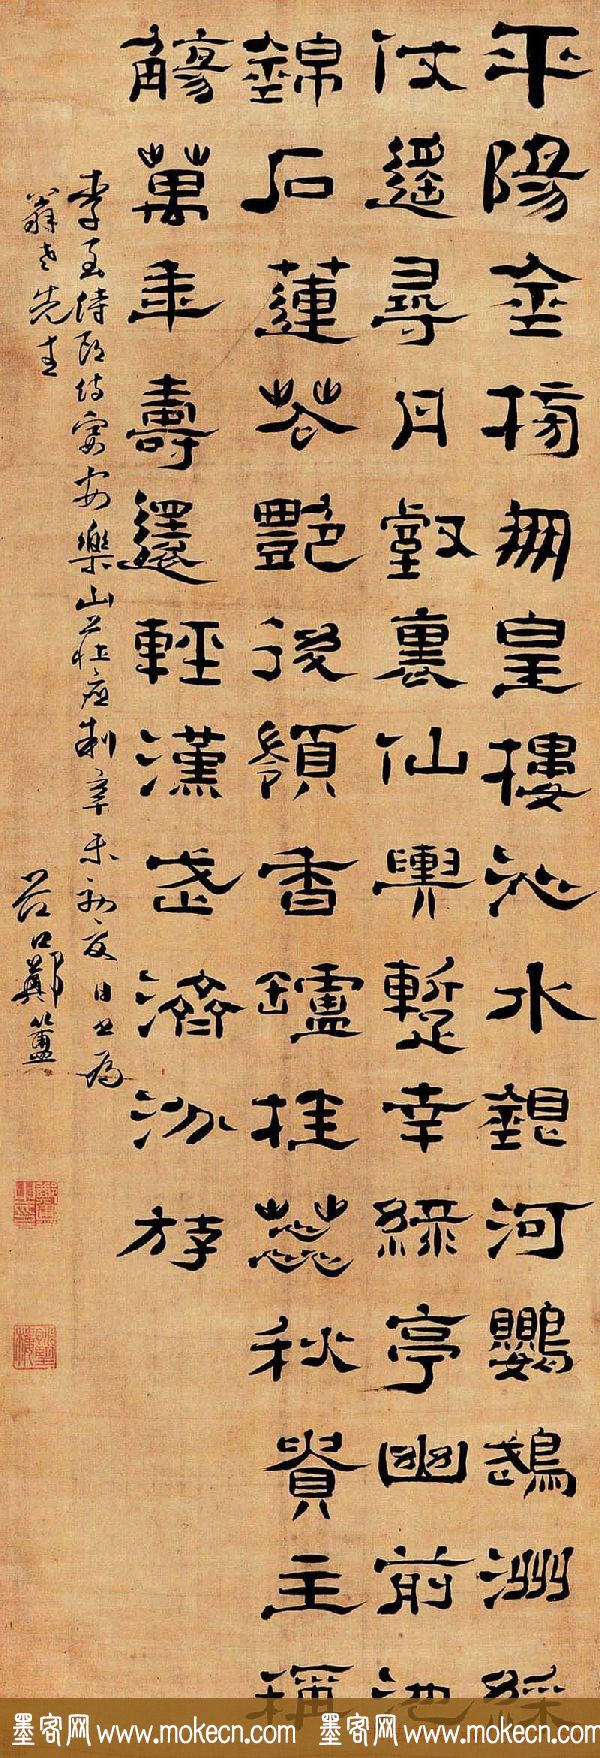 平陽金榜朋皇樓沁水銀河鸚鵡洲綵
仗遥尋丹壑裏仙輿蹔幸綠亭幽前池
錦石蓮花艷後嶺香罏桂蕊秋貴主稱
觴萬年壽還輕漢武濟汾游
李侍郎侍宴安樂山莊應制辛未初夏日書為
翁老先生
谷口鄭簠
墨客网 www.mokecn.com 墨客网 www.mokecn.com